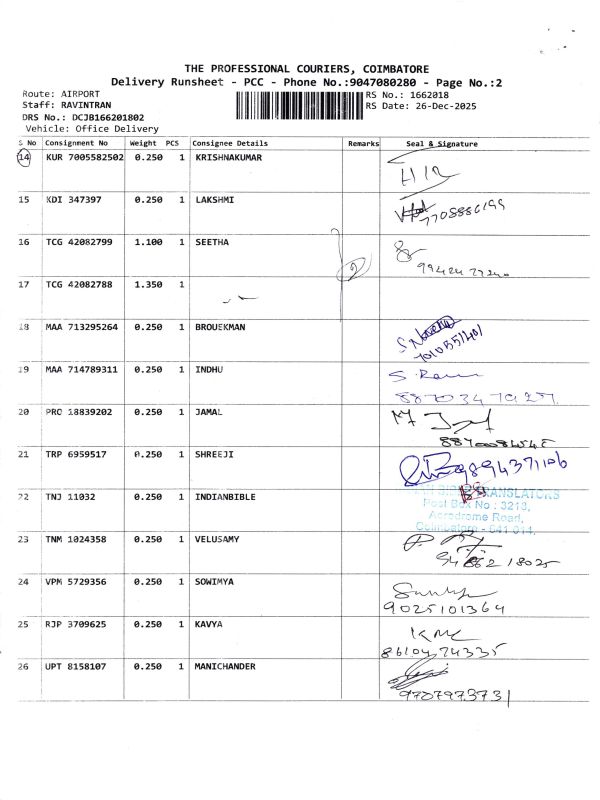 THE PROFESSIONAL COURIERS, COIMBATORE
Delivery Runsheet - PCC - Phone No.:9047080280 - Page No.:2
Route: AIRPORT
RS No.: 1662018
Staff: RAVINTRAN
RS Date: 26-Dec-2025
DRS No.: DCJB166201802
Vehicle: Office Delivery
S No Consignment No Weight PCS Consignee Details Remarks Seal & Signature
14 KUR 7005582502 0.250 1 KRISHNAKUMAR
15 KDI 347397 0.250 1 LAKSHMI
7708886199
16 TCG 42082799 1.100 1 SEETHA
2
17 TCG 42082788 1.350 1
18 MAA 713295264 0.250 1 BROUEKMAN
7010551401
19 MAA 714789311 0.250 1 INDHU
20 PRO 18839202 0.250 1 JAMAL
21 TRP 6959517 0.250 1 SHREEJI
9894371106
22 TNJ 11032 0.250 1 INDIANBIBLE
TRANSLATORS
Post Box No : 3213,
Aerodrome Road,
Coimbatore - 641 014.
23 TNM 1024358 0.250 1 VELUSAMY
24 VPM 5729356 0.250 1 SOWIMYA
9025101364
25 RJP 3709625 0.250 1 KAVYA
8610474335
26 UPT 8158107 0.250 1 MANICHANDER
9707973731